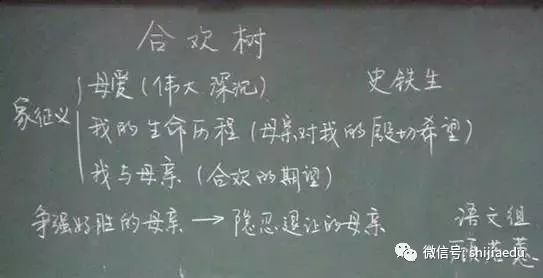 合欢树
史铁生
象征义
母爱(伟大 深沉)
我的生命历程(母亲对我的殷切希望)
我与母亲(合欢的期望)
争强好胜的母亲→隐忍退让的母亲
语文组
顾若蕙
微信号: shijiaedu